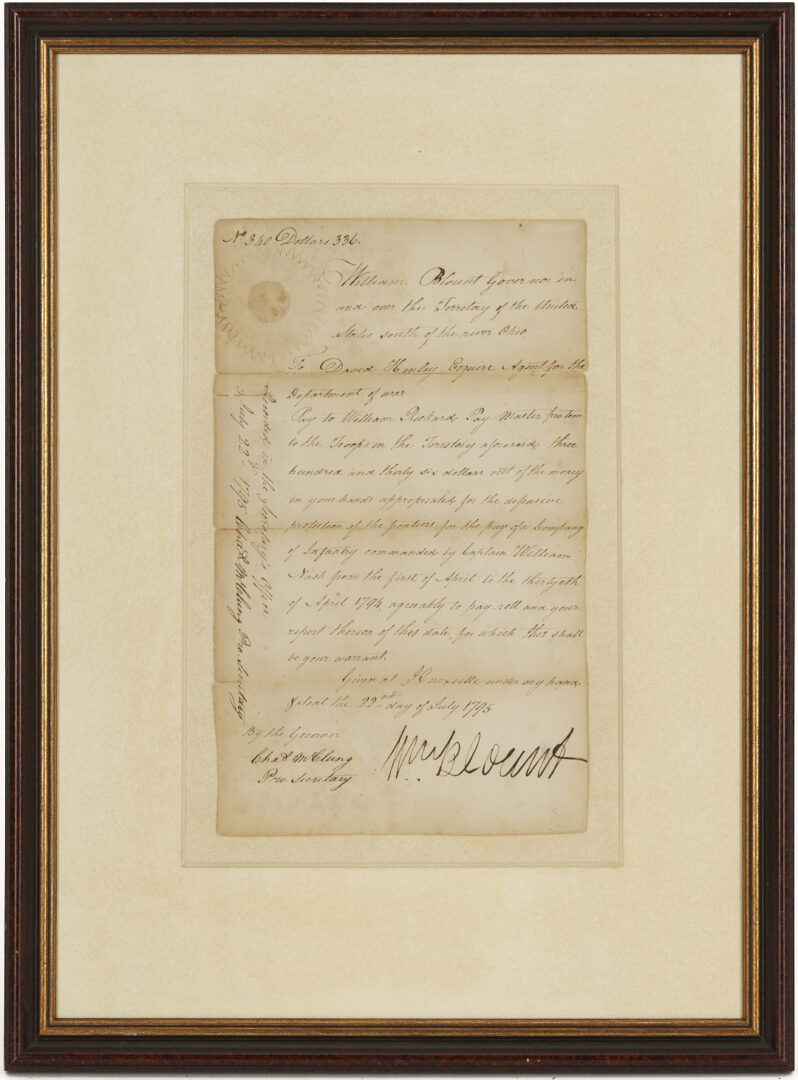 No. 340 Dollars 336.
William Blount Governor in
and over the Territory of the United
States, south of the river Ohio,
To David Henley Esquire Agent for the
Department of war
Pay to William Rickard Pay Master protem
to the Troops in the Territory aforesaid, three
hundred and thirty six dollars out of the money
in your hands appropriated for the defensive
protection of the frontiers for the pay of a Company
of Infantry commanded by Captain William
Nash from the first of April to the thirtyeth
of April 1794, agreably to pay roll and your
report thereon of this date, for which this shall
be your warrant.
Given at Knoxville under my hand
& seal the 22nd day of July 1795
By the Governor
Chas. McClung
Pro. Secretary
Wm. Blount
Recorded in the Secretary's Office
July 22d. 1795 Chas. McClung Pro. Secretary